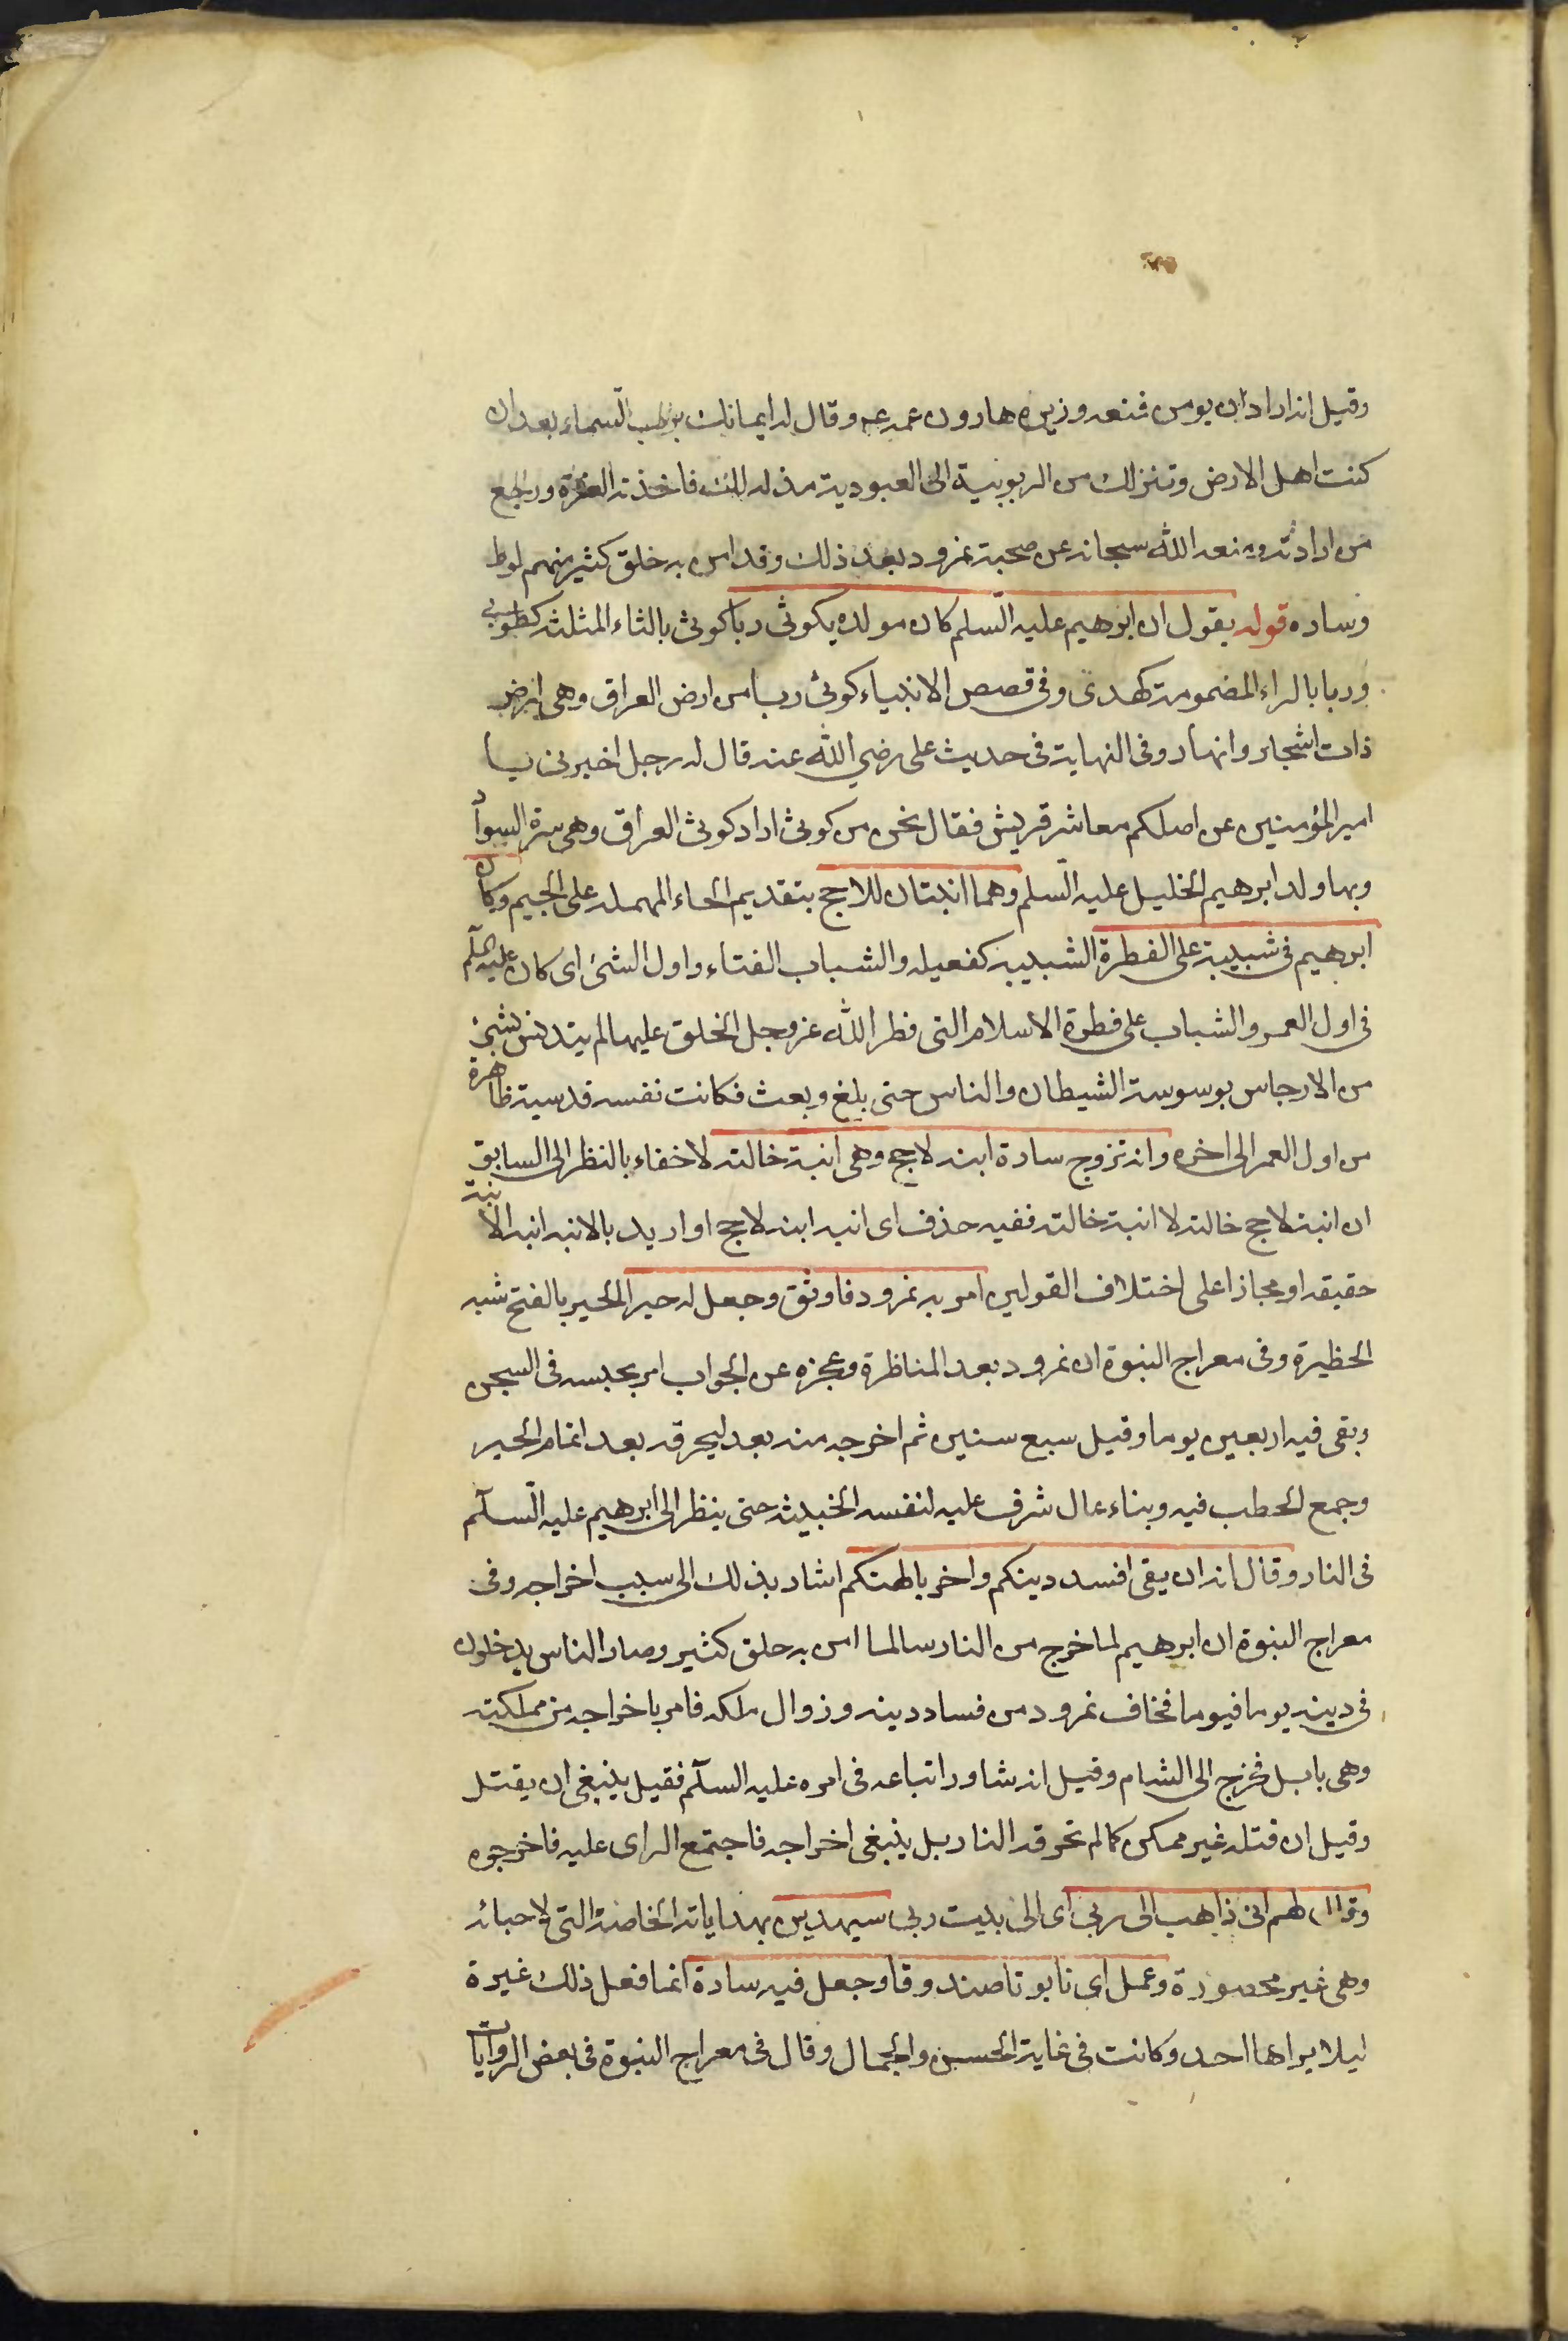 وقيل انه اراد ان يومن فمنعه وزيره هارون عمه عم وقال له ايمانك برب السماء بعد ان
كنت اهل الارض وتنزلك من الربوبية الى العبودية مذلة لك فاخذته العزة ورجع
من ارادته ومنعه الله سبحانه عن صحبة نمرود بعد ذلك وقد امن به خلق كثير منهم لوط
وساره قوله يقول ان ابرهيم عليه السلم كان مولده بكوثى ربا كوثى بالثاء المثلثة كطوبى
وربا بالراء المضمومة كهدى وفى قصص الانبياء كوثى ربا من ارض العراق وهى ارض
ذات اشجار وانهار وفى النهاية فى حديث على رضي الله عنه قال له رجل اخبرنى يا
امير المؤمنين عن اصلكم معاشر قريش فقال نحن من كوثى اراد كوثى العراق وهى سرة السواد
وبها ولد ابرهيم الخليل عليه السلم وهما ابنتان للاحج بتقديم الحاء المهمله على الجيم وكان
ابرهيم فى شبيبة على الفطرة الشبيبه كفعيله والشباب الفتاء واول الشئ اى كان عليه السلم
فى اول العمر والشباب على فطرة الاسلام التى فطر الله عز وجل الخلق عليها لم يتدنس بشئ
من الارجاس بوسوسة الشيطان والناس حتى بلغ وبعث فكانت نفسه قدسية طاهرة
من اول العمر الى اخره وانه تزوج سارة ابنه لاحج وهى ابنة خالته لاخفاء بالنظر الى السابق
ان ابنة لاحج خالته لا ابنة خالته ففيه حذف اى ابنه ابنه لاحج او اريد بالابنه ابنه الابنة
حقيقه او مجازا على اختلاف القولين امر به نمرود فاوثق وجعل له حير الحير بالفتح شبه
الحظيرة وفى معراج النبوة ان نمرود بعد المناظرة وعجزه عن الجواب امر بحبسه فى السجن
وبقى فيه اربعين يوما وقيل سبع سنين ثم اخرجه منه بعد ليحرقه بعد اتمام الحير
وجمع الحطب فيه وبناء عال شرف عليه لنفسه الخبيثه حتى ينظر الى ابرهيم عليه السلم
فى النار وقال انه ان بقى افسد دينكم واضر بالهتكم اشار بذلك الى سبب اخراجه وفى
معراج النبوة ان ابرهيم لما خرج من النار سالما امن به خلق كثير وصار الناس يدخلون
فى دينه يوما فيوما فخاف نمرود من فساد دينه وزوال ملكه فامر باخراجه من مملكته
وهى بابل فخرج الى الشام وقيل انه شاور اتباعه فى امره عليه السلم فقيل ينبغى ان يقتل
وقيل ان قتله غير ممكن كما لم تحرقه النار بل ينبغى اخراجه فاجتمع الراى عليه فاخرجوه
وقال لهم انى ذاهب الى ربي اى الى بيت ربى سيهدين بهداياته الخاصة التى لاحبائه
وهى غير محصورة وعمل اى تابوتا صندوقا وجعل فيه سارة انما فعل ذلك غيرة
ليلا يراها احد وكانت فى غاية الحسن والجمال وقال فى معراج النبوة فى بعض الروايات